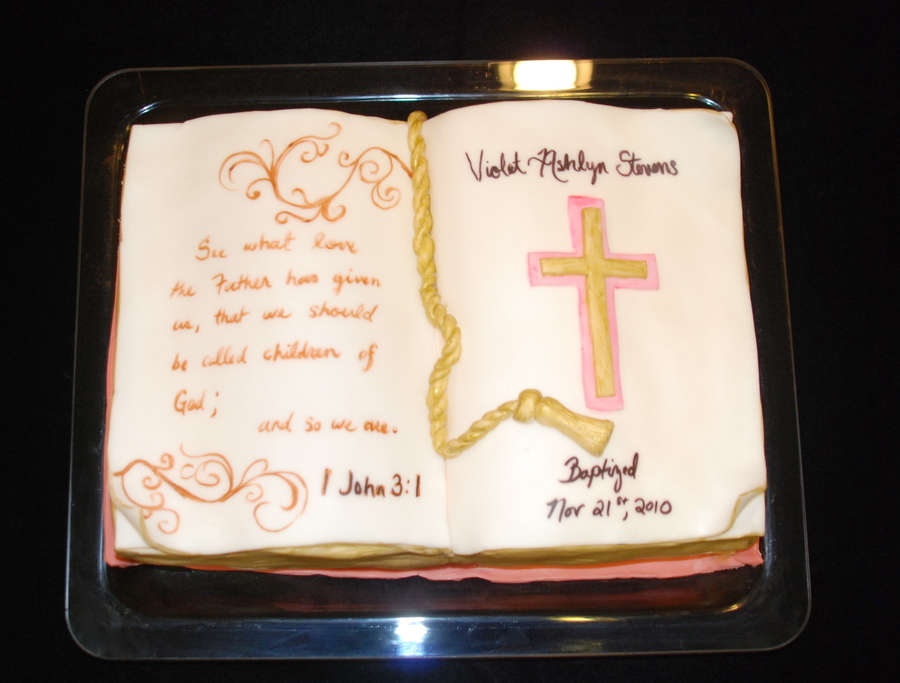 See what love
the Father has given
us, that we should
be called children of
God;
and so we are.
1 John 3:1
Violet Ashlyn Stevens
Baptized
Nov 21st, 2010